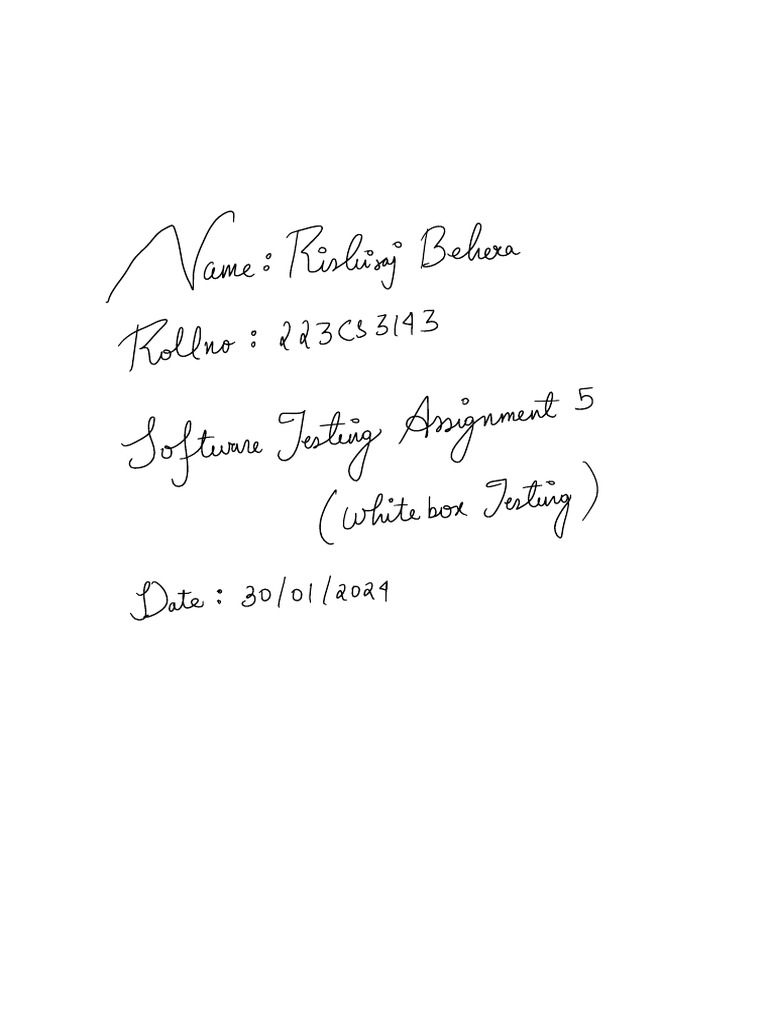 Name: Rishiraj Behera
Rollno: 223CS3143
Software Testing Assignment 5
(Whitebox Testing)
Date: 30/01/2024